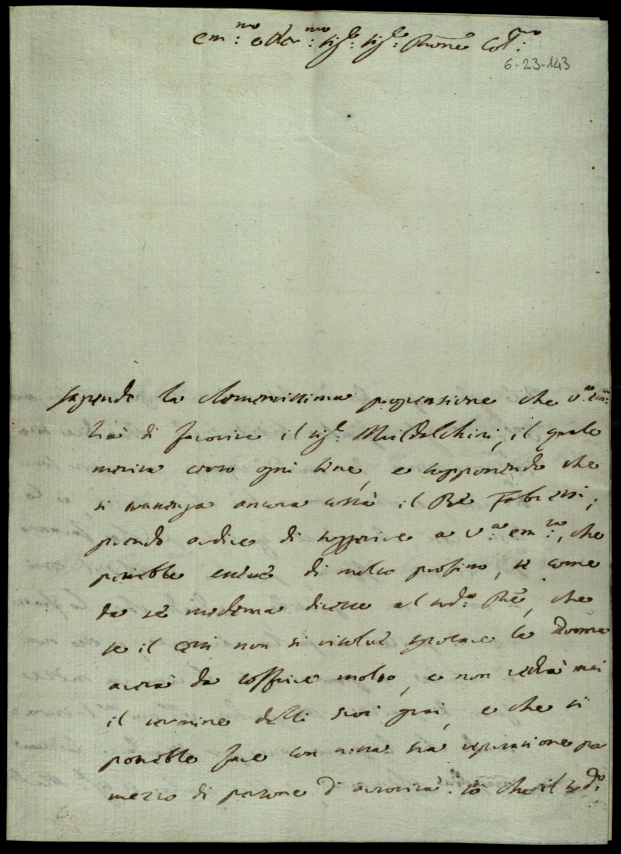 Em:mo e Rev:mo Sig:re Sig:re Prone Col:mo
6-23-143
Sapendo la clementissima propensione che V:ra Em:
di favorire il Sig:r Maidalchini, il quale
merita certo ogni bene, e supponendo che
si trattenga ancora costà il Pre Fabrizi,
prendo ardire di suggerire a V:ra Em:za, che
potrebbe essere di molto profitto, se come
da se medema dicesse al sud:o Pre, che
se il non si risolve sposare la Donna
averà da soffrire molto, e non vedrà mai
il termine delli suoi guai, e che si
potrebbe fare con tutta sua riputazione per
mezzo di persone d'autorità. Io che il sud:o